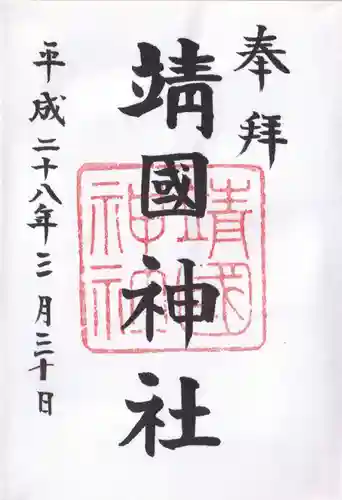 奉拝
靖國神社
平成二十八年三月三十日
靖國
神社